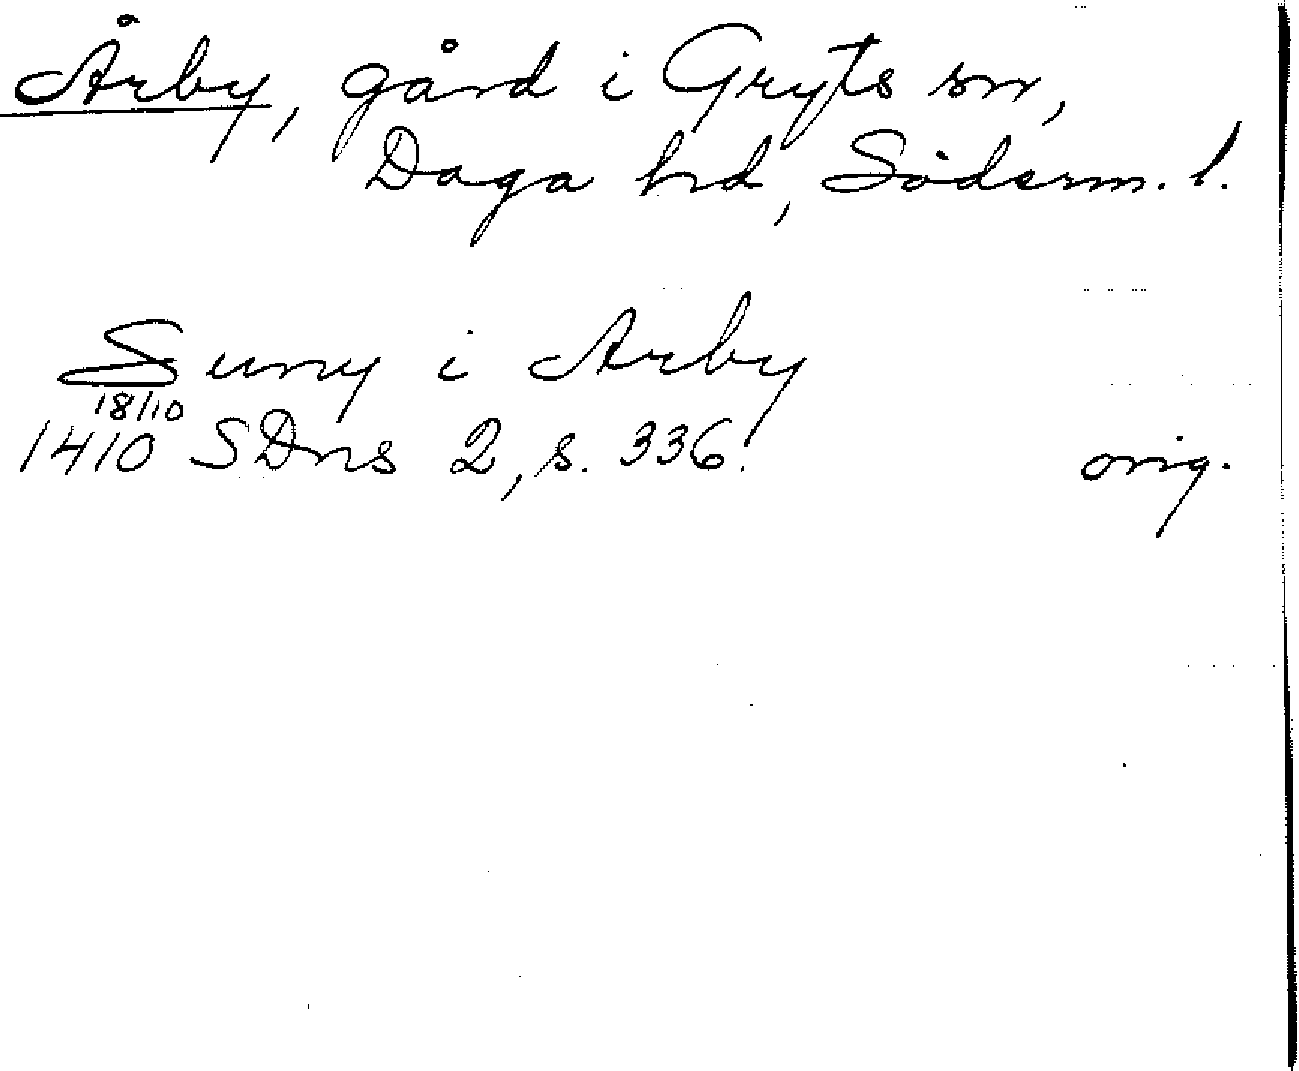 Årby, gård i Gryts sn,
Daga hd, Söderm. l.
Suny i Arby
18/10
1410 SDns 2, s. 336.
orig.